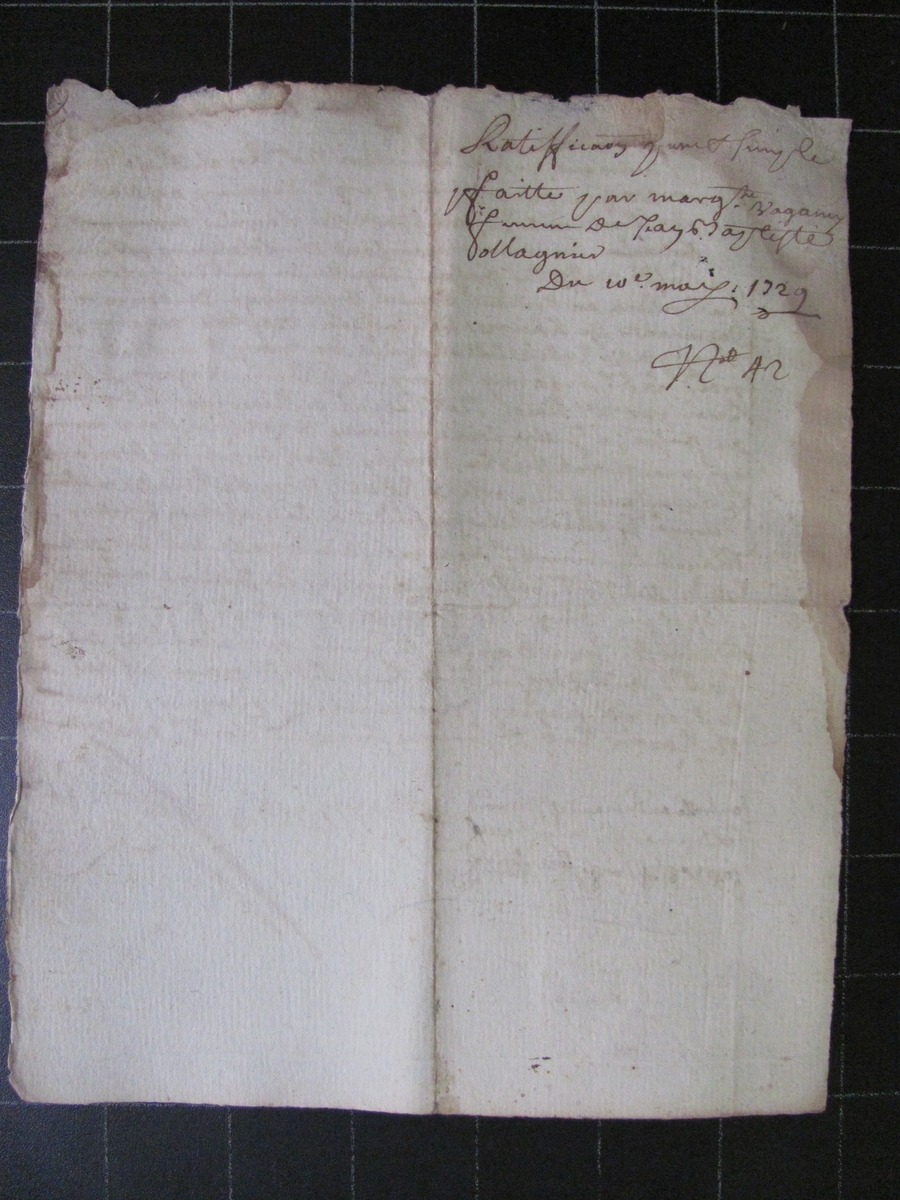 Ratifficaon quant simple
faitte par marg.te Vaganey
femme De Jean b. aptiste
ollagnier
Du 10e. may. 1729
N 42